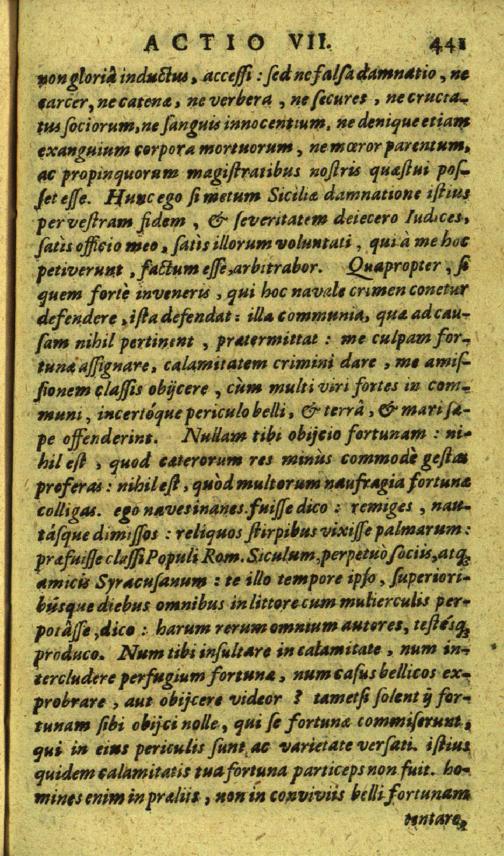 ACTIO VII. 441
non gloriâ inductus, accessi: sed ne falsa damnatio, ne
carcer, ne catenæ, ne verbera, ne secures, ne crucia-
tus sociorum, ne sanguis innocentium, ne denique etiam
exanguium corpora mortuorum, ne mœror parentum,
ac propinquorum magistratibus nostris quæstui pos-
set esse. Hunc ego si metum Siciliæ damnatione istius
per vestram fidem, & severitatem deiecero Iudices,
satis officio meo, satis illorum voluntati, qui à me hoc
petiverunt, factum esse arbitrabor. Quapropter, si
quem fortè inveneris, qui hoc navale crimen conetur
defendere, ista defendat: illa communia, quæ ad cau-
sam nihil pertinent, prætermittat: me culpam for-
tunæ assignare, calamitatem crimini dare, me amis-
sionem classis obijcere, cùm multi viri fortes in com-
muni, incertóque periculo belli, & terrâ, & mari sæ-
pe offenderint. Nullam tibi obijcio fortunam: ni-
hil est, quod cæterorum res minùs commodè gestas
proferas: nihil est, quòd multorum naufragia fortunæ
colligas. ego naves inanes fuisse dico: remiges, nau-
tásque dimissos: reliquos stirpibus vixisse palmarum:
præfuisse classi Populi Rom. Siculum, perpetuò sociis, atq;
amicis Syracusanum: te illo tempore ipso, superiori-
búsque diebus omnibus in littore cum mulierculis per-
potâsse, dico: harum rerum omnium autores, testésq;
produco. Num tibi insultare in calamitate, num in-
tercludere perfugium fortunæ, num casus bellicos ex-
probrare, aut obijcere videor? tametsi solent ij for-
tunam sibi obijci nolle, qui se fortunæ commiserunt,
qui in eius periculis sunt ac varietate versati. istius
quidem calamitatis tuæ fortuna particeps non fuit. ho-
mines enim in præliis, non in conviviis belli fortunam
tentare,